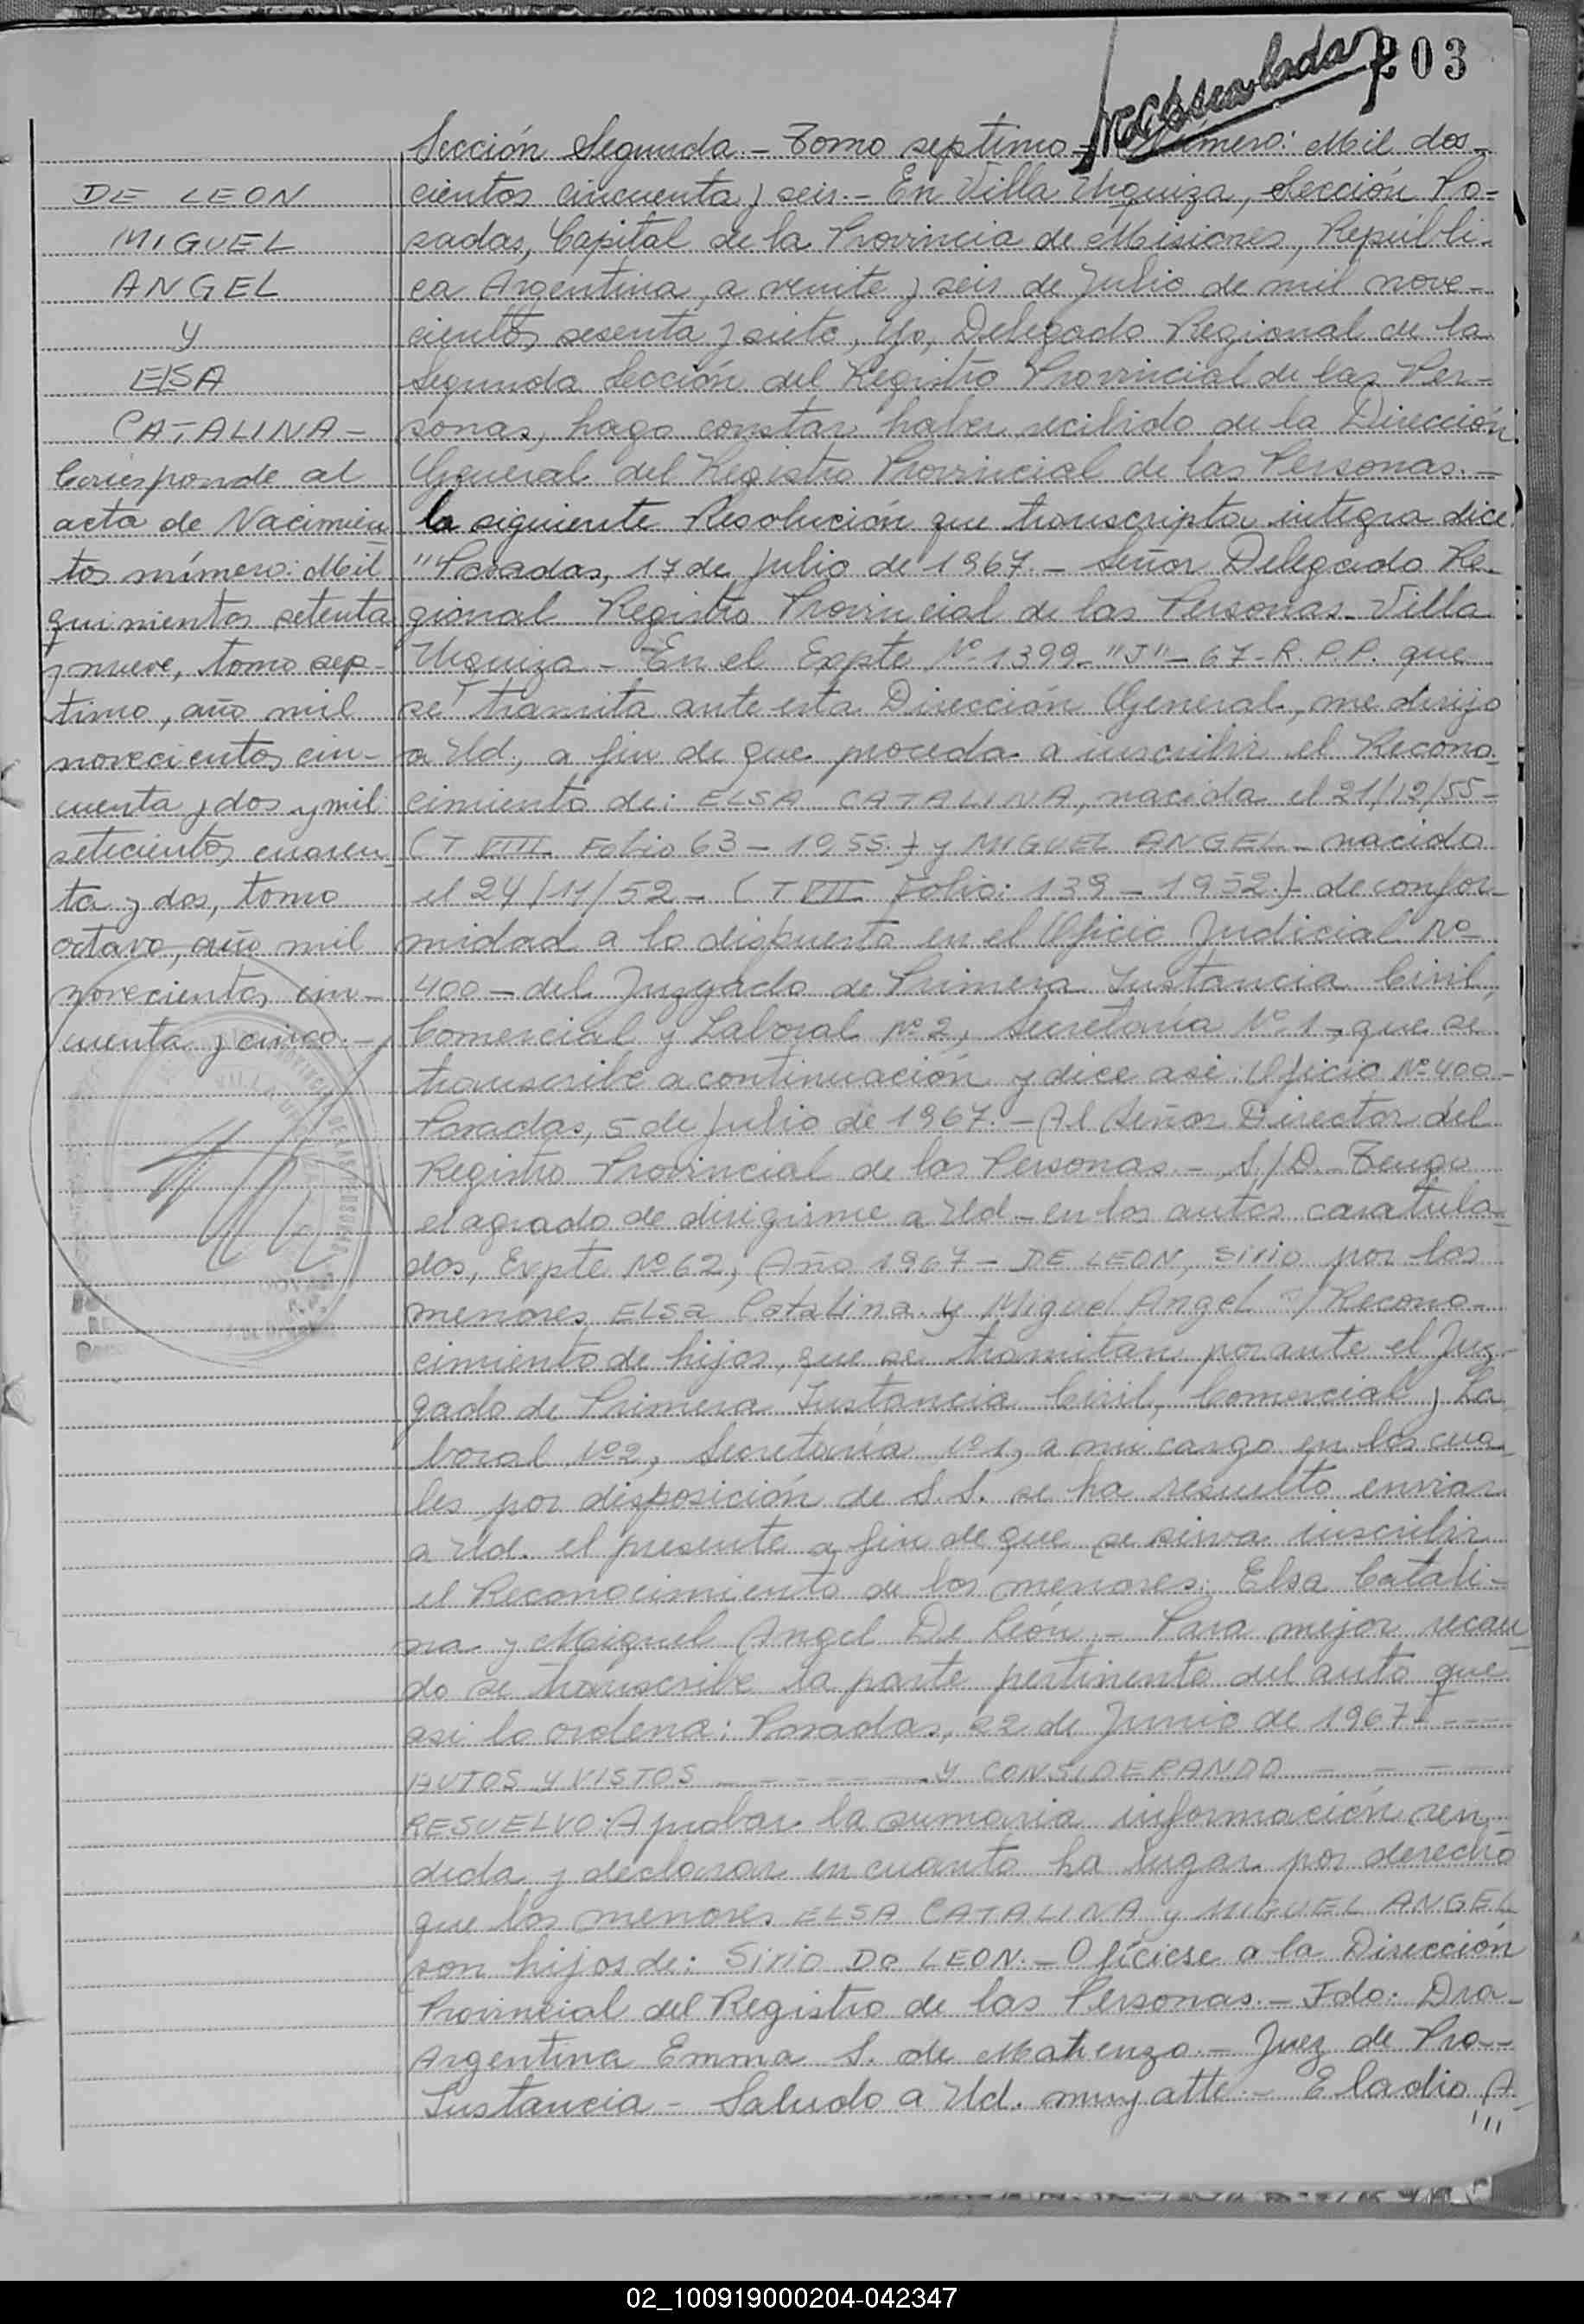 203
DE LEON
MIGUEL
ANGEL
Y
ELSA
CATALINA -
Corresponde al
acta de Nacimien
tos número: Mil
quinientos setenta
y nueve, tomo sep-
timo, año mil
novecientos cin-
cuenta y dos y mil
setecientos cuaren
ta y dos, tomo
octavo, año mil
novecientos cin-
cuenta y cinco. -
Sección Segunda - Tomo septimo - Número: Mil dos-
cientos cincuenta y seis. - En Villa Urquiza, Sección Po-
sadas, Capital de la Provincia de Misiones, Repúbli-
ca Argentina, a veinte y seis de Julio de mil nove-
cientos sesenta y siete, Yo, Delegado Regional de la
Segunda Sección del Registro Provincial de las Per-
sonas, hago constar haber recibido de la Dirección
General del Registro Provincial de las Personas. -
la siguiente Resolución que transcripta integra dice:
"Posadas, 17 de Julio de 1967. - Señor Delegado Re-
gional Registro Provincial de las Personas - Villa
Urquiza - En el Expte Nº 1399 - "J" - 67 - R.P.P. que
se tramita ante esta Dirección General, me dirijo
a Ud., a fin de que proceda a inscribir el Recono-
cimiento de: ELSA CATALINA, nacida el 21/12/55 -
(T VIII Folio 63 - 1955.) y MIGUEL ANGEL - nacido
el 24/11/52 - (T VII Folio: 139 - 1952.) - de confor-
midad a lo dispuesto en el Oficio Judicial Nº
400 - del Juzgado de Primera Instancia Civil,
Comercial y Laboral Nº 2, Secretaría Nº 1 -, que se
transcribe a continuación y dice asi: Oficio Nº 400 -
Posadas, 5 de Julio de 1967. - Al Señor Director del
Registro Provincial de las Personas. - S/D. Tengo
el agrado de dirigirme a Ud - en los autos caratula-
dos, Expte Nº 62, Año 1967 - DE LEON, SIRIO por los
menores ELSA Catalina y Miguel Angel s/ Recono-
cimiento de hijos, que se tramitan por ante el Juz-
gado de Primera Instancia Civil, Comercial y La-
boral Nº 2, Secretaría Nº 1, a mi cargo en los cua-
les por disposición de S.S. se ha resuelto enviar
a Ud. el presente a fin de que se sirva inscribir
el Reconocimiento de los menores: Elsa Catali-
na y Miguel Angel De León. - Para mejor recau-
do se transcribe la parte pertinente del auto que
asi lo ordena: Posadas, 22 de Junio de 1967 - ----
AUTOS Y VISTOS - - - - - - - Y CONSIDERANDO - - - -
RESUELVO: Aprobar la sumaria información ren-
dida y declarar en cuanto ha lugar por derecho
que los menores ELSA CATALINA y MIGUEL ANGEL
son hijos de: SIRIO DO LEON. - Ofíciese a la Dirección
Provincial del Registro de las Personas. - Fdo: Dra -
Argentina Emma S. de Matienzo. - Juez de Pra--
Instancia - Saludo a Ud. muy atte. - Eladio A.
'''
02_100919000204-042347